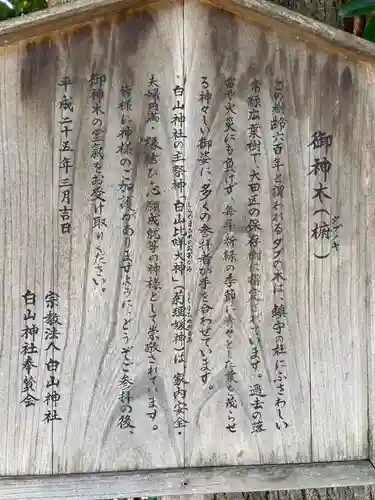 御神木(椨)タブノキ
この樹齢六百年と謂われるタブの木は、鎮守の杜にふさわしい
常緑広葉樹で、大田区の保存樹に指定されています。過去の落
雷や火災にも負けず、毎年新緑の季節に
とした葉を茂らせ
る神々しい御姿に、多くの参拝者が手を合わせています。
白山神社の主祭神「白山比咩大神」(菊理媛神)は、家内安全・
夫婦円満・縁結び・心願成就等の神様として崇敬されています。
皆様に神様のご加護がありますように、どうぞご参拝の後、
御神木の霊気をお受け取りください。
平成二十五年三月吉日
宗教法人白山神社
白山神社奉賛会